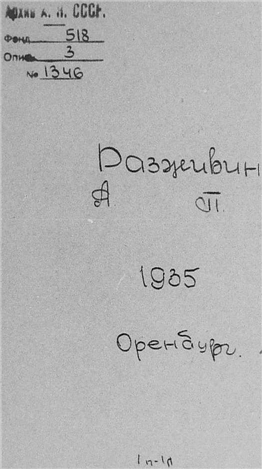 Архив А. Н. СССР.
Фонд 518
Опись 3
№ 1346
Разживин
А П.
1935
Оренбург.
1п-1л